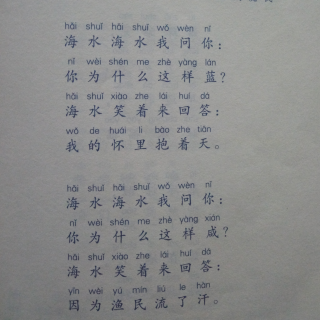 hǎi shuǐ hǎi shuǐ wǒ wèn nǐ
海水海水我问你：
nǐ wèi shén me zhè yàng lán
你为什么这样蓝？
hǎi shuǐ xiào zhe lái huí dá
海水笑着来回答：
wǒ de huái lǐ bào zhe tiān
我的怀里抱着天。
hǎi shuǐ hǎi shuǐ wǒ wèn nǐ
海水海水我问你：
nǐ wèi shén me zhè yàng xián
你为什么这样咸？
hǎi shuǐ xiào zhe lái huí dá
海水笑着来回答：
yīn wèi yú mín liú le hàn
因为渔民流了汗。